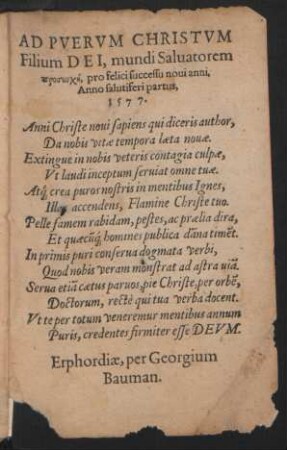 AD PVERVM CHRISTVM
Filium DEI, mundi Saluatorem
προσευχὴ, pro felici successu noui anni,
Anno salutiferi partus,
1577.
Anni Christe noui sapiens qui diceris author,
Da nobis vitæ tempora læta nouæ.
Extingue in nobis veteris contagia culpæ,
Vt laudi inceptum seruiat omne tuæ.
Atq́; crea puros nostris in mentibus Ignes,
Illas accendens, Flamine Christe tuo.
Pelle famem rabidam, pestes, ac prælia dira,
Et quæcũq́; homines publica dãna timẽt.
In primis puri conserua dogmata verbi,
Quod nobis veram mõnstrat ad astra viã.
Serua etiã cætus paruos, pie Christe, per orbẽ,
Doctorum, rectè qui tua verba docent.
Vt te per totum veneremur mentibus annum
Puris, credentes firmiter esse DEVM.
Erphordiæ, per Georgium
Bauman.